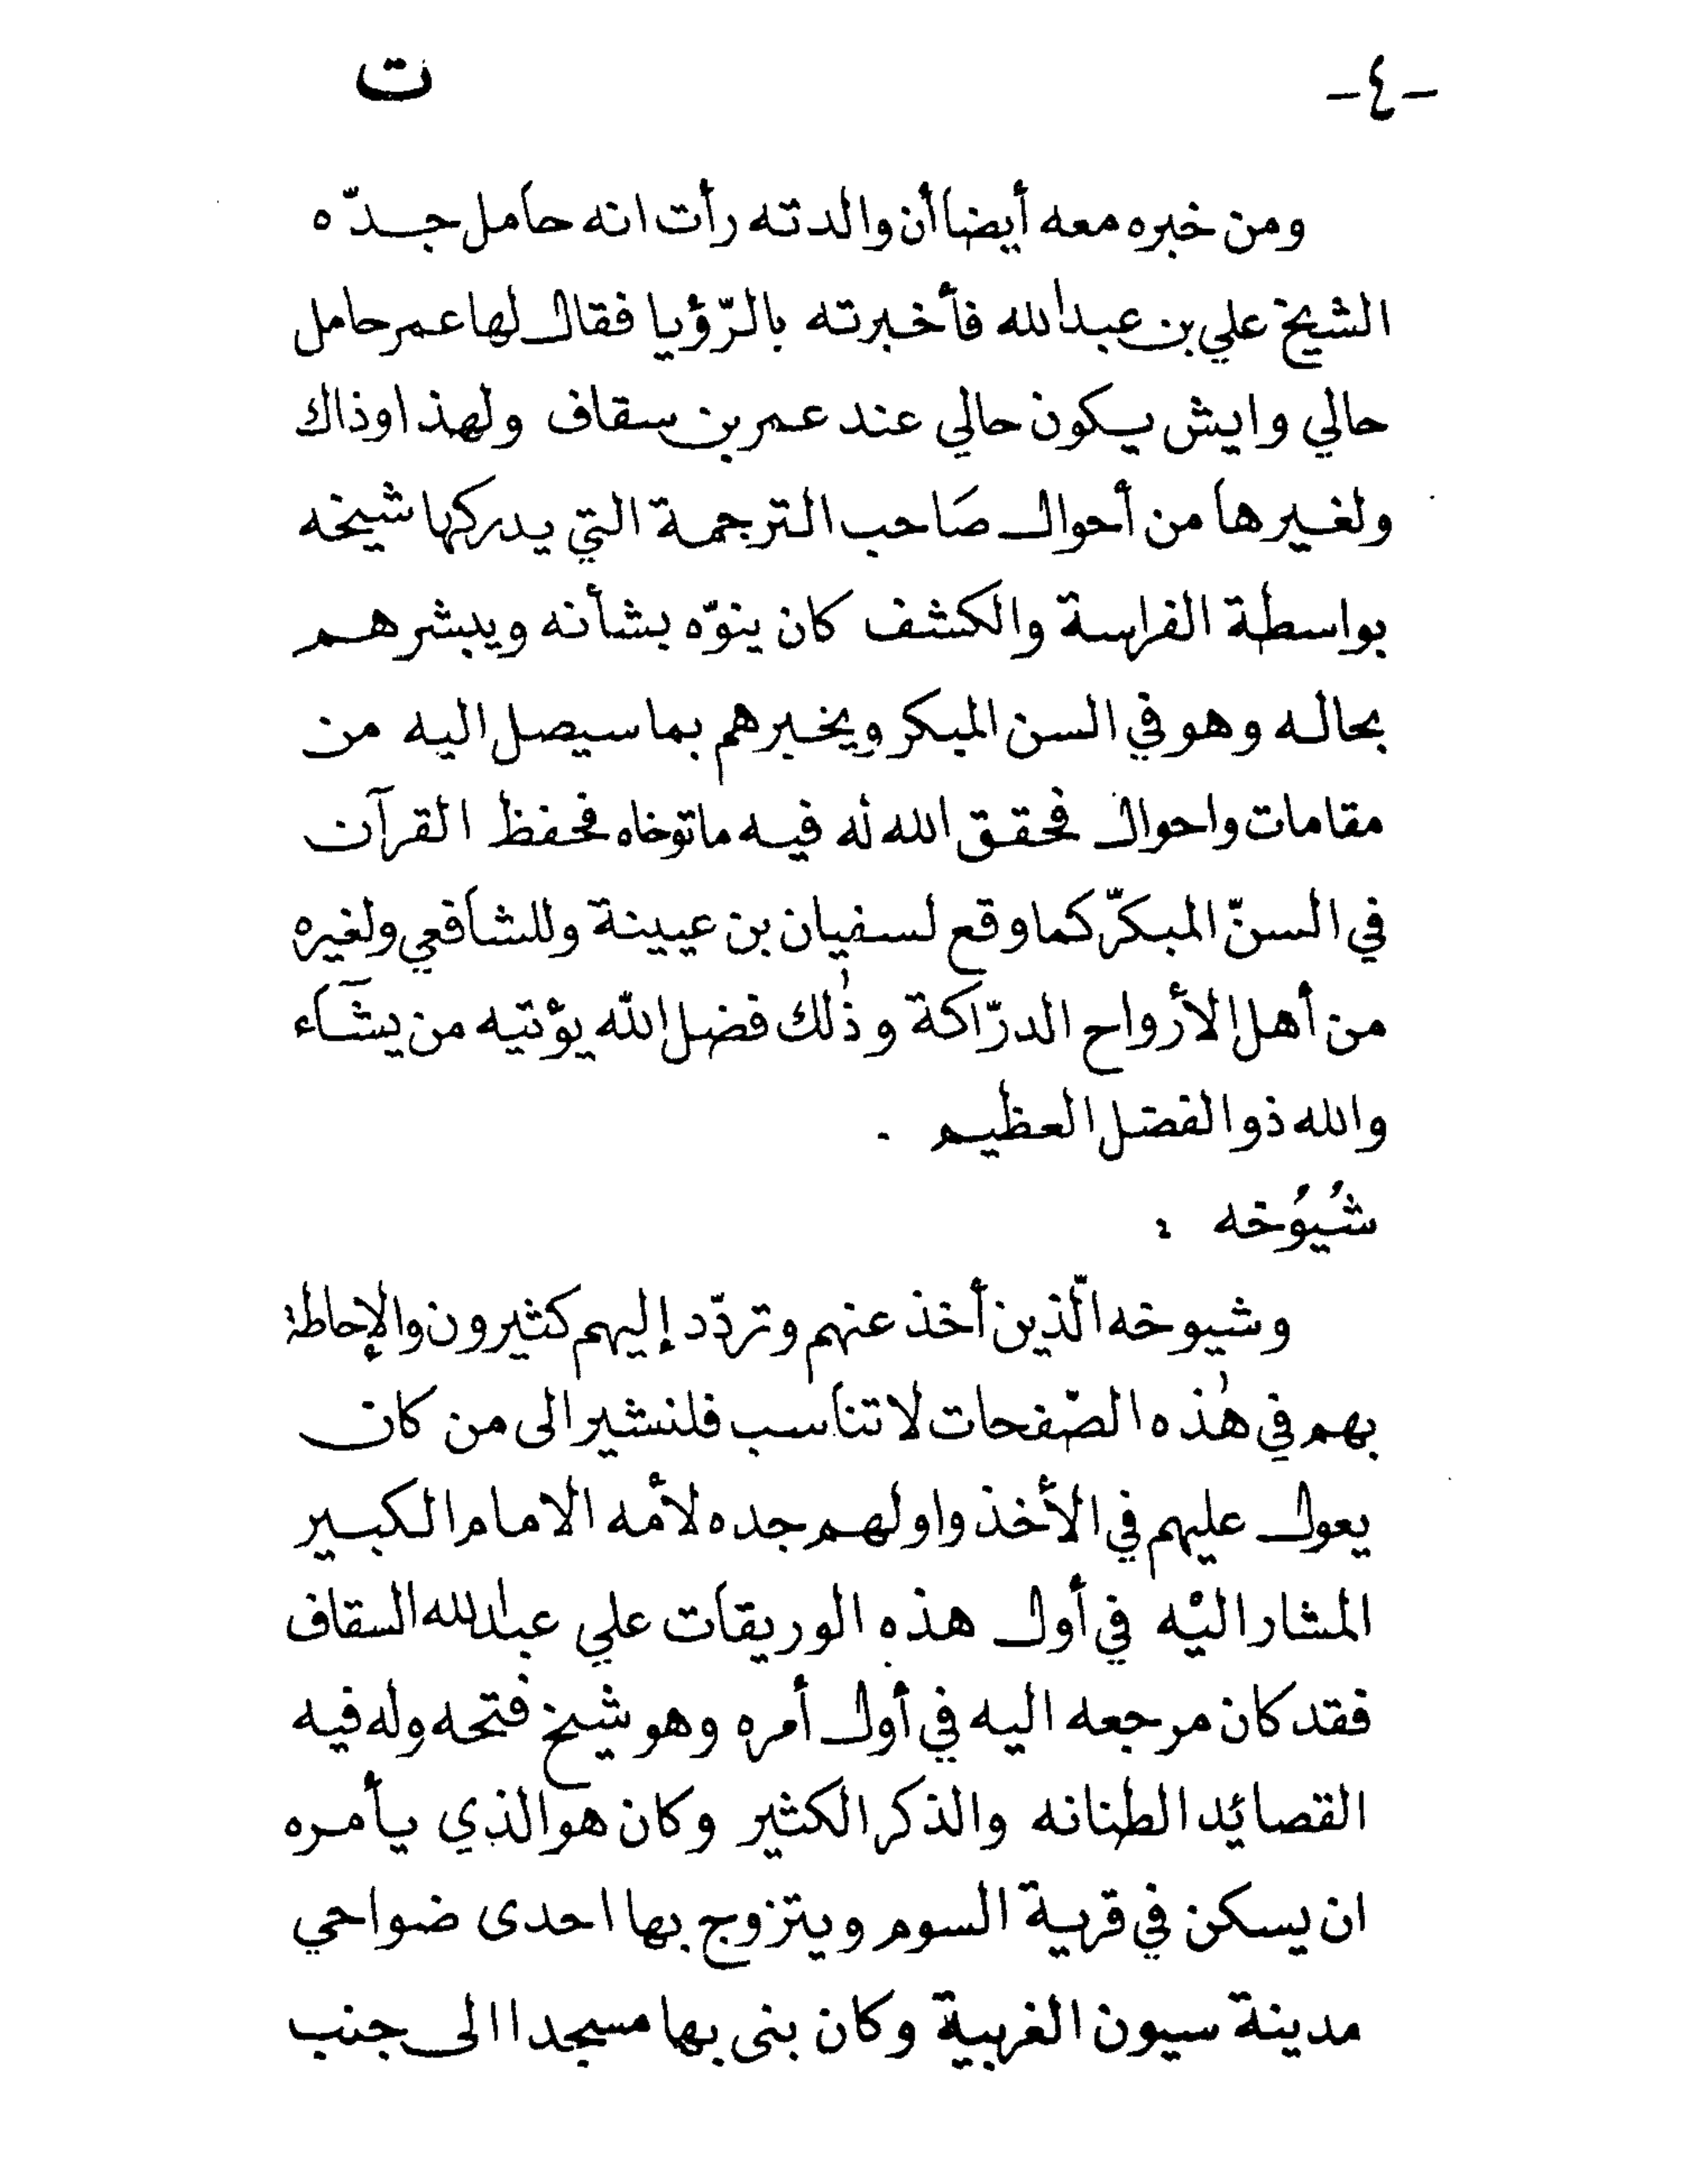 -٤- ت
ومن خبره معه أيضا أن والدته رأت انه حامل جدّه
الشيخ علي بن عبدالله فأخبرته بالرّؤيا فقال لها عمر حامل
حالي وايش يكون حالي عند عمر بن سقاف ولهذا وذاك
ولغيرها من أحوال صَاحب الترجمة التي يدركها شيخه
بواسطة الفراسة والكشف كان ينوّه بشأنه ويبشرهم
بحاله وهو في السن المبكر ويخبرهم بما سيصل اليه من
مقامات واحوال فحقق الله له فيه ماتوخاه فحفظ القرآن
في السنّ المبكّر كما وقع لسفيان بن عيينة وللشافعي ولغيره
من أهل الأرواح الدرّاكة وذٰلك فضل اللّه يؤتيه من يشآء
والله ذو الفضل العظيم .
شُيُوُخه :
وشيوخه الّذين أخذ عنهم وتردّد إليهم كثيرون والإحاطة
بهم في هٰذه الصّفحات لا تناسب فلنشير الى من كان
يعول عليهم في الأخذ واولهم جده لأمه الامام الكبير
المشار اليْه في أول هذه الوريقات علي عبدالله السقاف
فقد كان مرجعه اليه في أول أمره وهو شيخ فتحه وله فيه
القصائد الطنانه والذكر الكثير وكان هو الذي يأمره
ان يسكن في قرية السوم ويتزوج بها احدى ضواحي
مدينة سيون الغربية وكان بنى بها مسجدا الى جنب